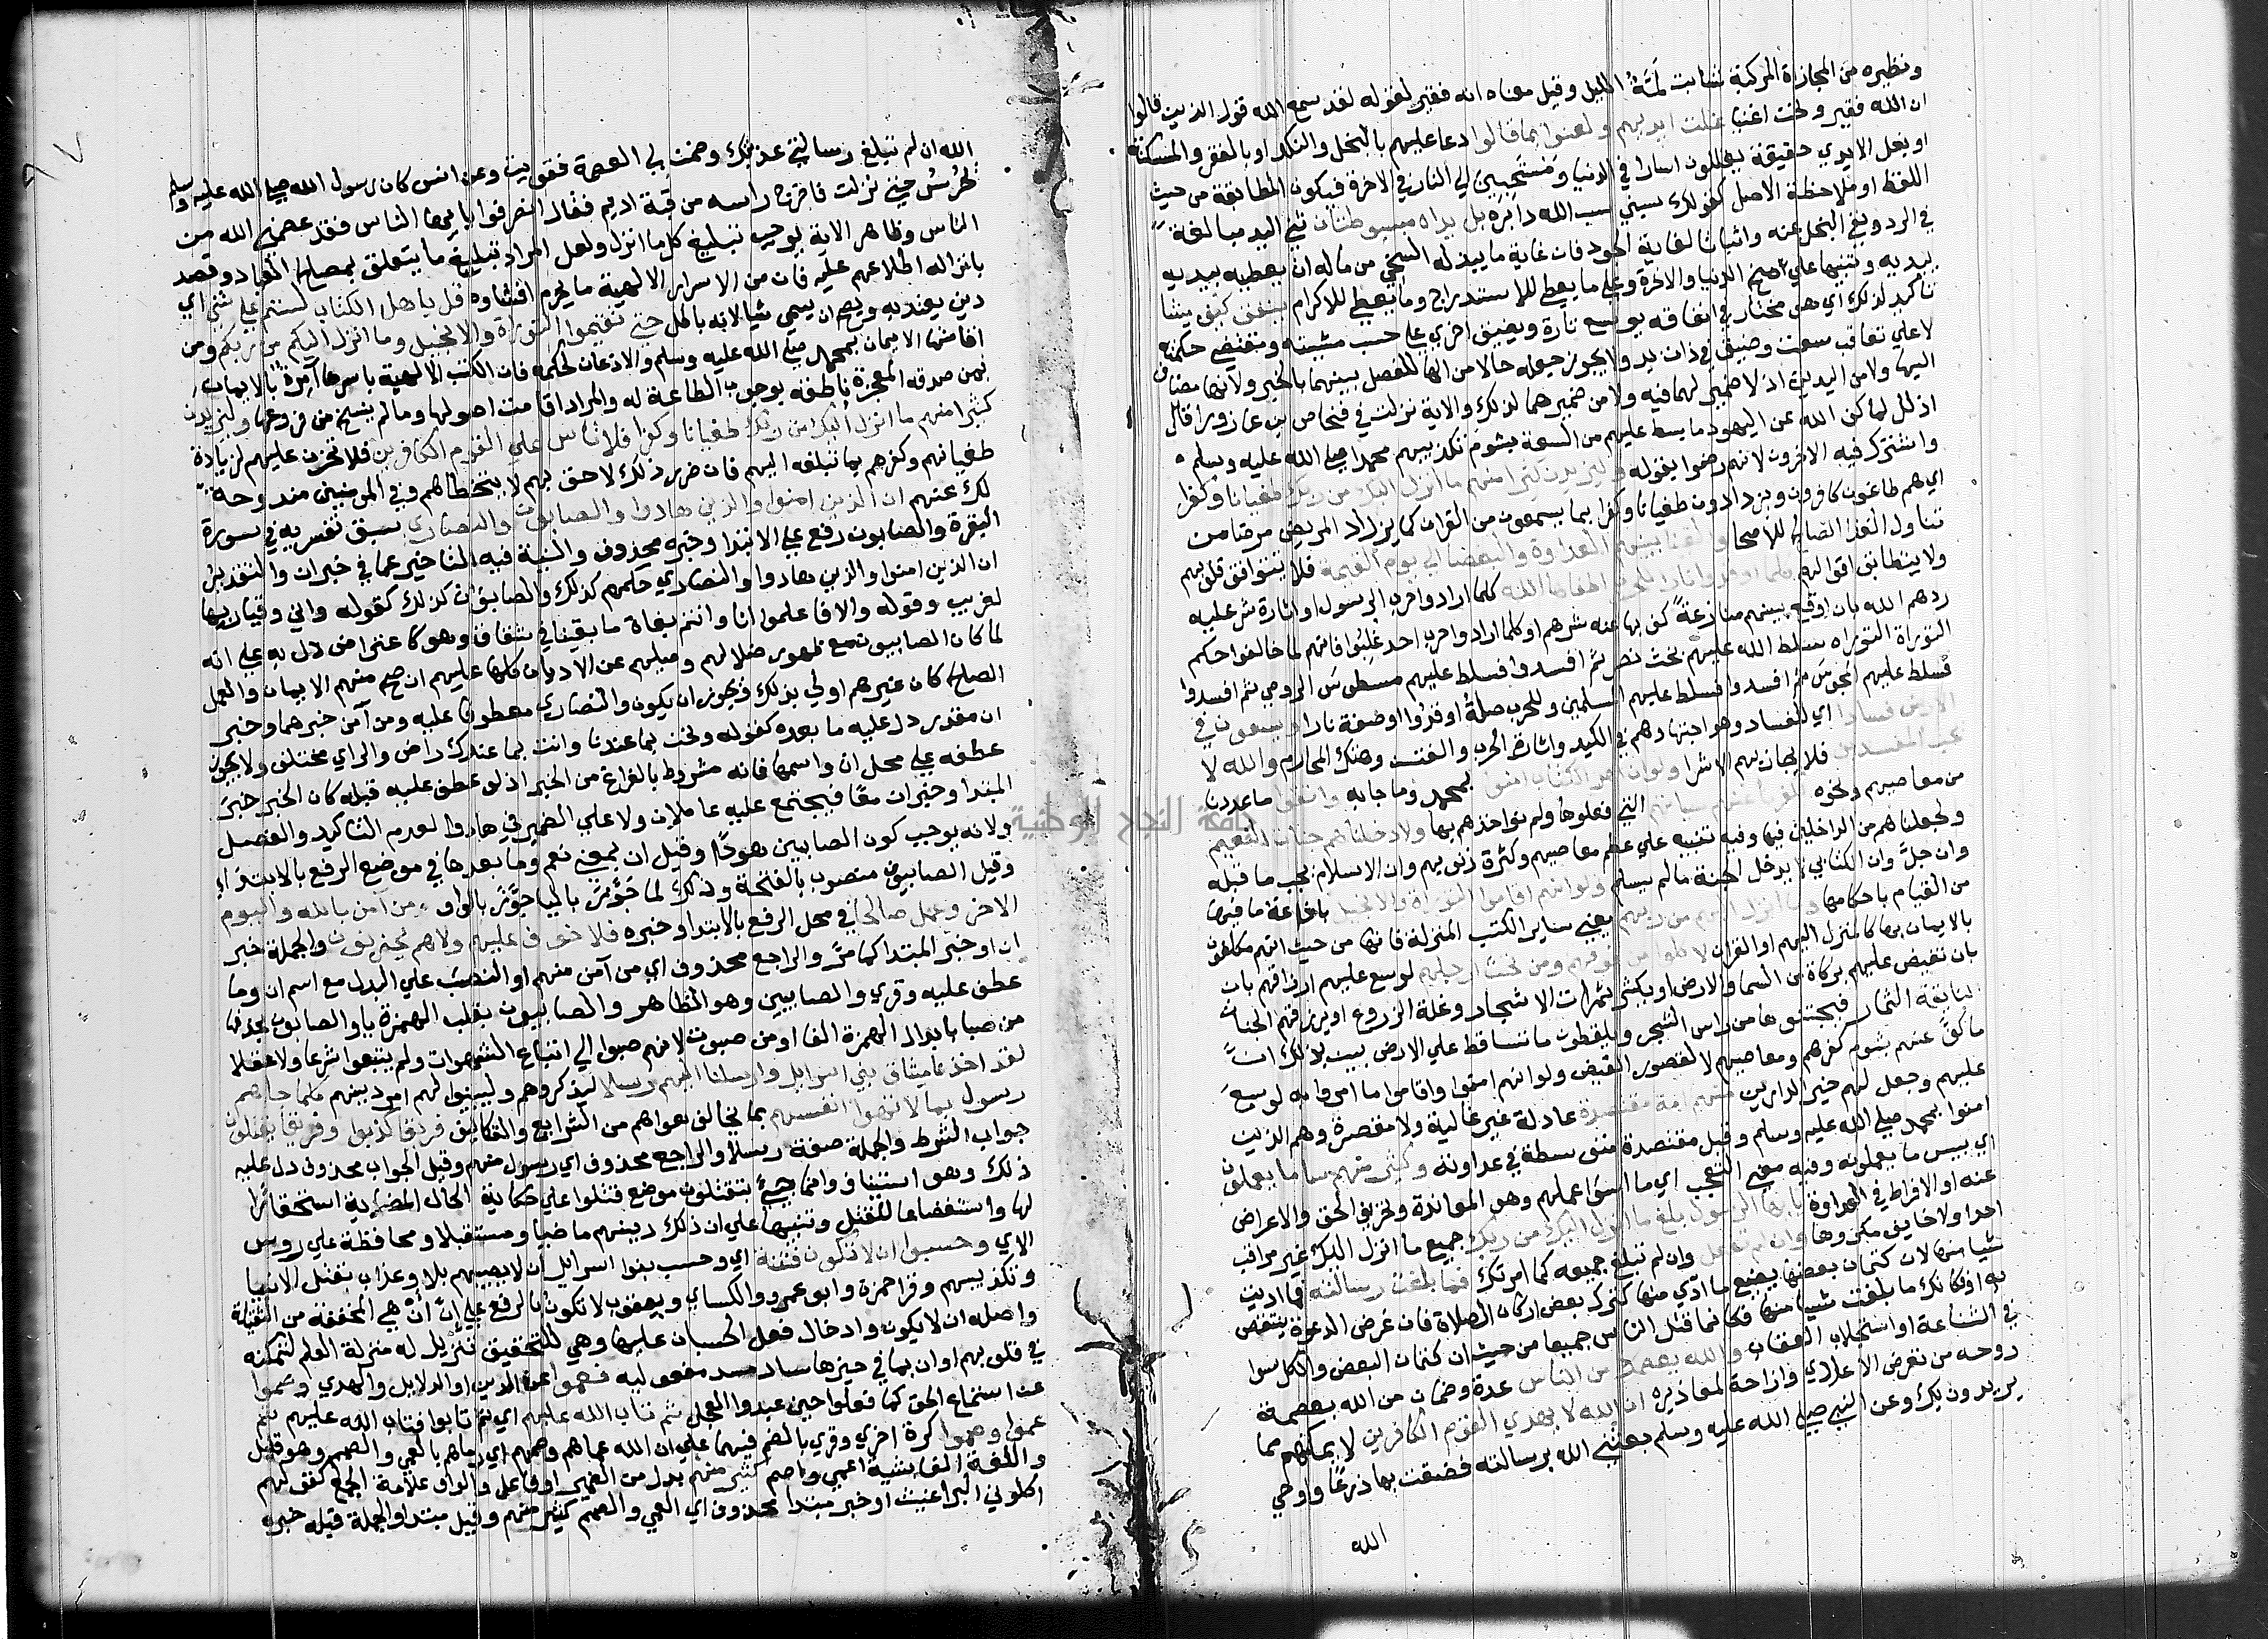 ونظيره من المجازاة المركبة شابت لمة الليل وقيل معناه انه فقير لقوله لقد سمع الله قول الذين قالوا
ان الله فقير ونحن اغنيا غلت ايديهم ولعنوا بما قالوا دعا عليهم بالبخل والنكد او بالفقر والمسكنة
او بغل الايدي حقيقة يغللون اسارا في الدنيا ومسحبين الي النار في الاخرة فيكون المطابقة من حيث
اللفظ او ملاحظة الاصل كقولك سبني سب الله دابره بل يداه مبسوطتان ثني اليد مبالغة
في الرد ونفي البخل عنه واثباتا لغاية الجود فان غاية ما يبذله السخي من ماله ان يعطيه بيديه
بيديه وتنبيها علي منح الدنيا والاخرة وعلي ما يعطي للاستدراج وما يعطي للاكرام ينفق كيف يشا
تاكيد لذلك اي هو مختار في انفاقه يوسع تارة ويضيق اخري علي حسب مشيته ومقتضي حكمته
لا علي تعاقب سعة وضيق في ذات يد ولا يجوز جعله حالا من الها للفصل بينهما بالخبر ولانها مضاف
اليها ولا من اليدين اذ لا ضمير لهما فيه ولا من ضميرهما لذلك والاية نزلت في فنحاص بن عازورا قال
اذلك لما كف الله عن اليهود ما بسط عليهم من السعة بشوم تكذيبهم محمدا صلي الله عليه وسلم
واشترك فيه الاخرون لانهم رضوا بقوله وليزيدن كثيرا منهم ما انزل اليك من ربك طغيانا وكفرا
اي هم طاغون كافرون ويزدادون طغيانا وكفرا بما يسمعون من القران كما يزداد المريض مرضا من
تناول الغذا الصالح للاصحا والقينا بينهم العداوة والبغضا الي يوم القيمة فلا يتوافق قلوبهم
ولا يتطابق اقوالهم كلما اوقدوا نارا للحرب اطفاها الله كلما ارادوا حرب الرسول او اثارة شر عليه
ردهم الله بان اوقع بينهم منازعة كف بها عنه شرهم او كلما ارادوا حرب احد غلبوا فانهم لما خالفوا حكم
التوراة التوراه سلط الله عليهم بخت نصر ثم افسدوا فسلط عليهم مسطوس الرومي ثم افسدوا
فسلط عليهم المجوس ثم افسدوا فسلط عليهم المسلمين وللحرب صلة اوقدوا او صفة نارا ويسعون في
الارض فسادا اي للفساد وهو اجتهادهم في الكيد واثارة الحرب والفتن وهتك المحارم والله لا
يحب المفسدين فلا يجازيهم الا شرا ولو ان اهل الكتاب امنوا بمحمد وما جا به واتقوا ما عددنا
من معاصيهم ونحوه لكفرنا عنهم سياتهم التي فعلوها ولم نواخذهم بها ولادخلناهم جنات النعيم
ولجعلناهم من الداخلين فيها وفيه تنبيه علي عظم معاصيهم وكثرة ذنوبهم وان الاسلام يجب ما قبله
وان جل وان الكتابي لا يدخل الجنة ما لم يسلم ولو انهم اقاموا التوراة والانجيل باذاعة ما فيهما
من القيام باحكامها وما انزل اليهم من ربهم يعني ساير الكتب المنزلة فانها من حيث انهم مكلفون
بالايمان بها كالمنزل اليهم او القران لاكلوا من فوقهم ومن تحت ارجلهم لوسع عليهم ارزاقهم بان
بان تفيض عليهم بركاة من السما والارض او يكثر ثمرات الاشجار وغلة الزروع او يرزقهم الجنان
اليانعة الثمار فيجتنوها من راس الشجر ويلقطون ما تساقط علي الارض بين بذلك ان
ما كف عنهم بشوم كفرهم ومعاصيهم لا لقصور الفيض ولو انهم امنوا واقاموا ما امروا به لوسع
عليهم وجعل لهم خير الدارين منهم امة مقتصدة عادلة غير غالية ولا مقصرة وهم الذين
امنوا بمحمد صلي الله عليه وسلم وقيل مقتصدة متوسطة في عداوته وكثير منهم سا ما يعملون
اي بيس ما يعملونه وفيه معني التعجب اي ما اسوا عملهم وهو المعاندة وتحريف الحق والاعراض
عنه او الافراط في العداوة يا ايها الرسول بلغ ما انزل اليك من ربك جميع ما انزل اليك غير مراقب
احدا ولا خايف مكروها وان لم تفعل وان لم تبلغ جميعه كما امرتك فما بلغت رسالته فما اديت
شيا منها لان كتمان بعضها يضيع ما ادي منها كترك بعض اركان الصلاة فان غرض الدعوة ينتقض
به او فكانك ما بلغت شيا منها فكانما قتل الناس جميعا من حيث ان كتمان البعض والكل سوا
في الشناعة او استجلاب العقاب والله يعصمك من الناس عدة وضمان من الله بعصمة
روحه من تعرض الاعادي وازاحة لمعاذيره ان الله لا يهدي القوم الكافرين لا يمكنهم مما
يريدون بك وعن النبي صلي الله عليه وسلم بعثني الله برسالته فضقت بها ذرعا واوحي
الله
الله ان لم تبلغ رسالتي عذبتك وضمن لي العصمة فقويت وعن انس كان رسول الله صلي الله عليه وسلم
يحرس حتي نزلت فاخرج راسه من قبة اديم فقال انصرفوا يا ايها الناس فقد عصمني الله من
الناس وظاهر الاية يوجب تبليغ كل ما انزل ولعل المراد تبليغ ما يتعلق بمصالح العباد وقصد
بانزاله اطلاعهم عليه فان من الاسرار الالهية ما يحرم افشاوه قل يا هل الكتاب لستم علي شي اي
دين يعتد به ويصح ان يسمي شيا لانه باطل حتي تقيموا التوراة والانجيل وما انزل اليكم من ربكم ومن
اقامتها الايمان بمحمد صلي الله عليه وسلم والاذعان لحكمه فان الكتب الالهية باسرها آمرة بالايمان
بمن صدقه المعجزة ناطقة بوجوب الطاعة له والمراد اقامت اصولها وما لم ينسخ من فروعها وليزيدن
كثيرا منهم ما انزل اليك من ربك طغيانا وكفرا فلا تاس علي القوم الكافرين فلا تحزن عليهم لزيادة
طغيانهم وكفرهم بما تبلغه اليهم فان ضرر ذلك لاحق بهم لا يتخطاهم وفي المومنين مندوحة
لك عنهم ان الذين امنوا والذين هادوا والصابون والنصاري سبق تفسيره في سورة
البقرة والصابون رفع علي الابتدا وخبره محذوف والنية فيه التاخير عما في خبر ان والتقدير
ان الذين امنوا والذين هادوا والنصاري حكمهم كذلك والصابون كذلك كقوله واني وقيار بها
لغريب وقوله والا فاعلموا انا وانتم بغاة ما بقينا في شقاق وهو كاعتراض دل به علي انه
لما كان الصابيون مع ظهور ضلالهم وميلهم عن الاديان كلها عليهم ان صح منهم الايمان والعمل
الصلح كان غيرهم اولي بذلك ويجوز ان يكون والنصاري معطوفا عليه ومن آمن خبرهما وخبر
ان مقدر دل عليه ما بعده كقوله ونحن بما عندنا وانت بما عندك راض والراي مختلف ولا يجوز
عطفه علي محل ان واسمها فانه مشروط بالفراغ من الخبر اذ لو عطف عليه قبله كان الخبر خبر
المبتدا وخبر ان معا فيجتمع عليه عاملان ولا علي الضمير في هادوا لعدم التاكيد والفصل
ولانه يوجب كون الصابيين هودا وقيل ان بمعني نعم وما بعدها في موضع الرفع بالابتدا
وقيل الصابيون منصوب بالفتحة وذلك لما جوز باليا جوز بالواو من آمن بالله واليوم
الاخر وعمل صالحا في محل الرفع بالابتدا وخبره فلا خوف عليهم ولا هم يحزنون والجملة خبر
ان او خبر المبتدا كما مر والراجع محذوف اي من آمن منهم او النصب علي البدل مع اسم ان وما
عطف عليه وقري والصابيين وهو الظاهر والصابيون بقلب الهمزة يا والصابون بحذفها
من صبا بابدال الهمزة الفا او من صبوت لانهم صبوا الي اتباع الشهوات ولم يتبعوا شرعا ولا عقلا
لقد اخذنا ميثاق بني اسرايل وارسلنا اليهم رسلا ليذكروهم وليبينوا لهم امر دينهم كلما جاهم
رسول بما لا تهوا انفسهم بما يخالف هواهم من الشرايع والتكاليف فريقا كذبوا وفريقا يقتلون
جواب الشرط والجملة صفة رسلا والراجع محذوف اي رسول منهم وقيل الجواب محذوف دل عليه
ذلك وهو استيناف وانما جيء بيقتلون موضع قتلوا علي حكاية الحال الماضية استحضارا
لها واستفضاعا للقتل وتنبيها علي ان ذلك ديدنهم ماضيا ومستقبلا ومحافظة علي روس
الاي وحسبوا ان لا تكون فتنة اي وحسب بنوا اسرايل ان لا يصيبهم بلا وعذاب بقتل الانبيا
وتكذيبهم وقرا حمزة وابو عمرو والكساي ويعقوب لا تكون بالرفع علي ان ان هي المخففة من الثقيلة
واصله انه لا يكون وادخال فعل الحسبان عليها وهي للتحقيق تنزيل له منزلة العلم لتمكنه
في قلوبهم او ان بما في حيزها ساد مسد مفعوليه فعموا عن الدين او الدلايل والهدي وصموا
عن استماع الحق كما فعلوا حين عبدوا العجل ثم تاب الله عليهم اي ثم تابوا فتاب الله عليهم ثم
عموا وصموا كرة اخري وقري بالضم فيهما علي ان الله عماهم وصمهم اي رماهم بالعمي والصمم وهو قليل
واللغة الفاشية اعمي واصم كثير منهم بدل من الضمير او فاعل والواو علامة الجمع كقولهم
اكلوني البراغيث او خبر مبتدا محذوف اي العمي والصمم كثير منهم وقيل مبتدا والجملة قبله خبره
جامعة النجاح الوطنية